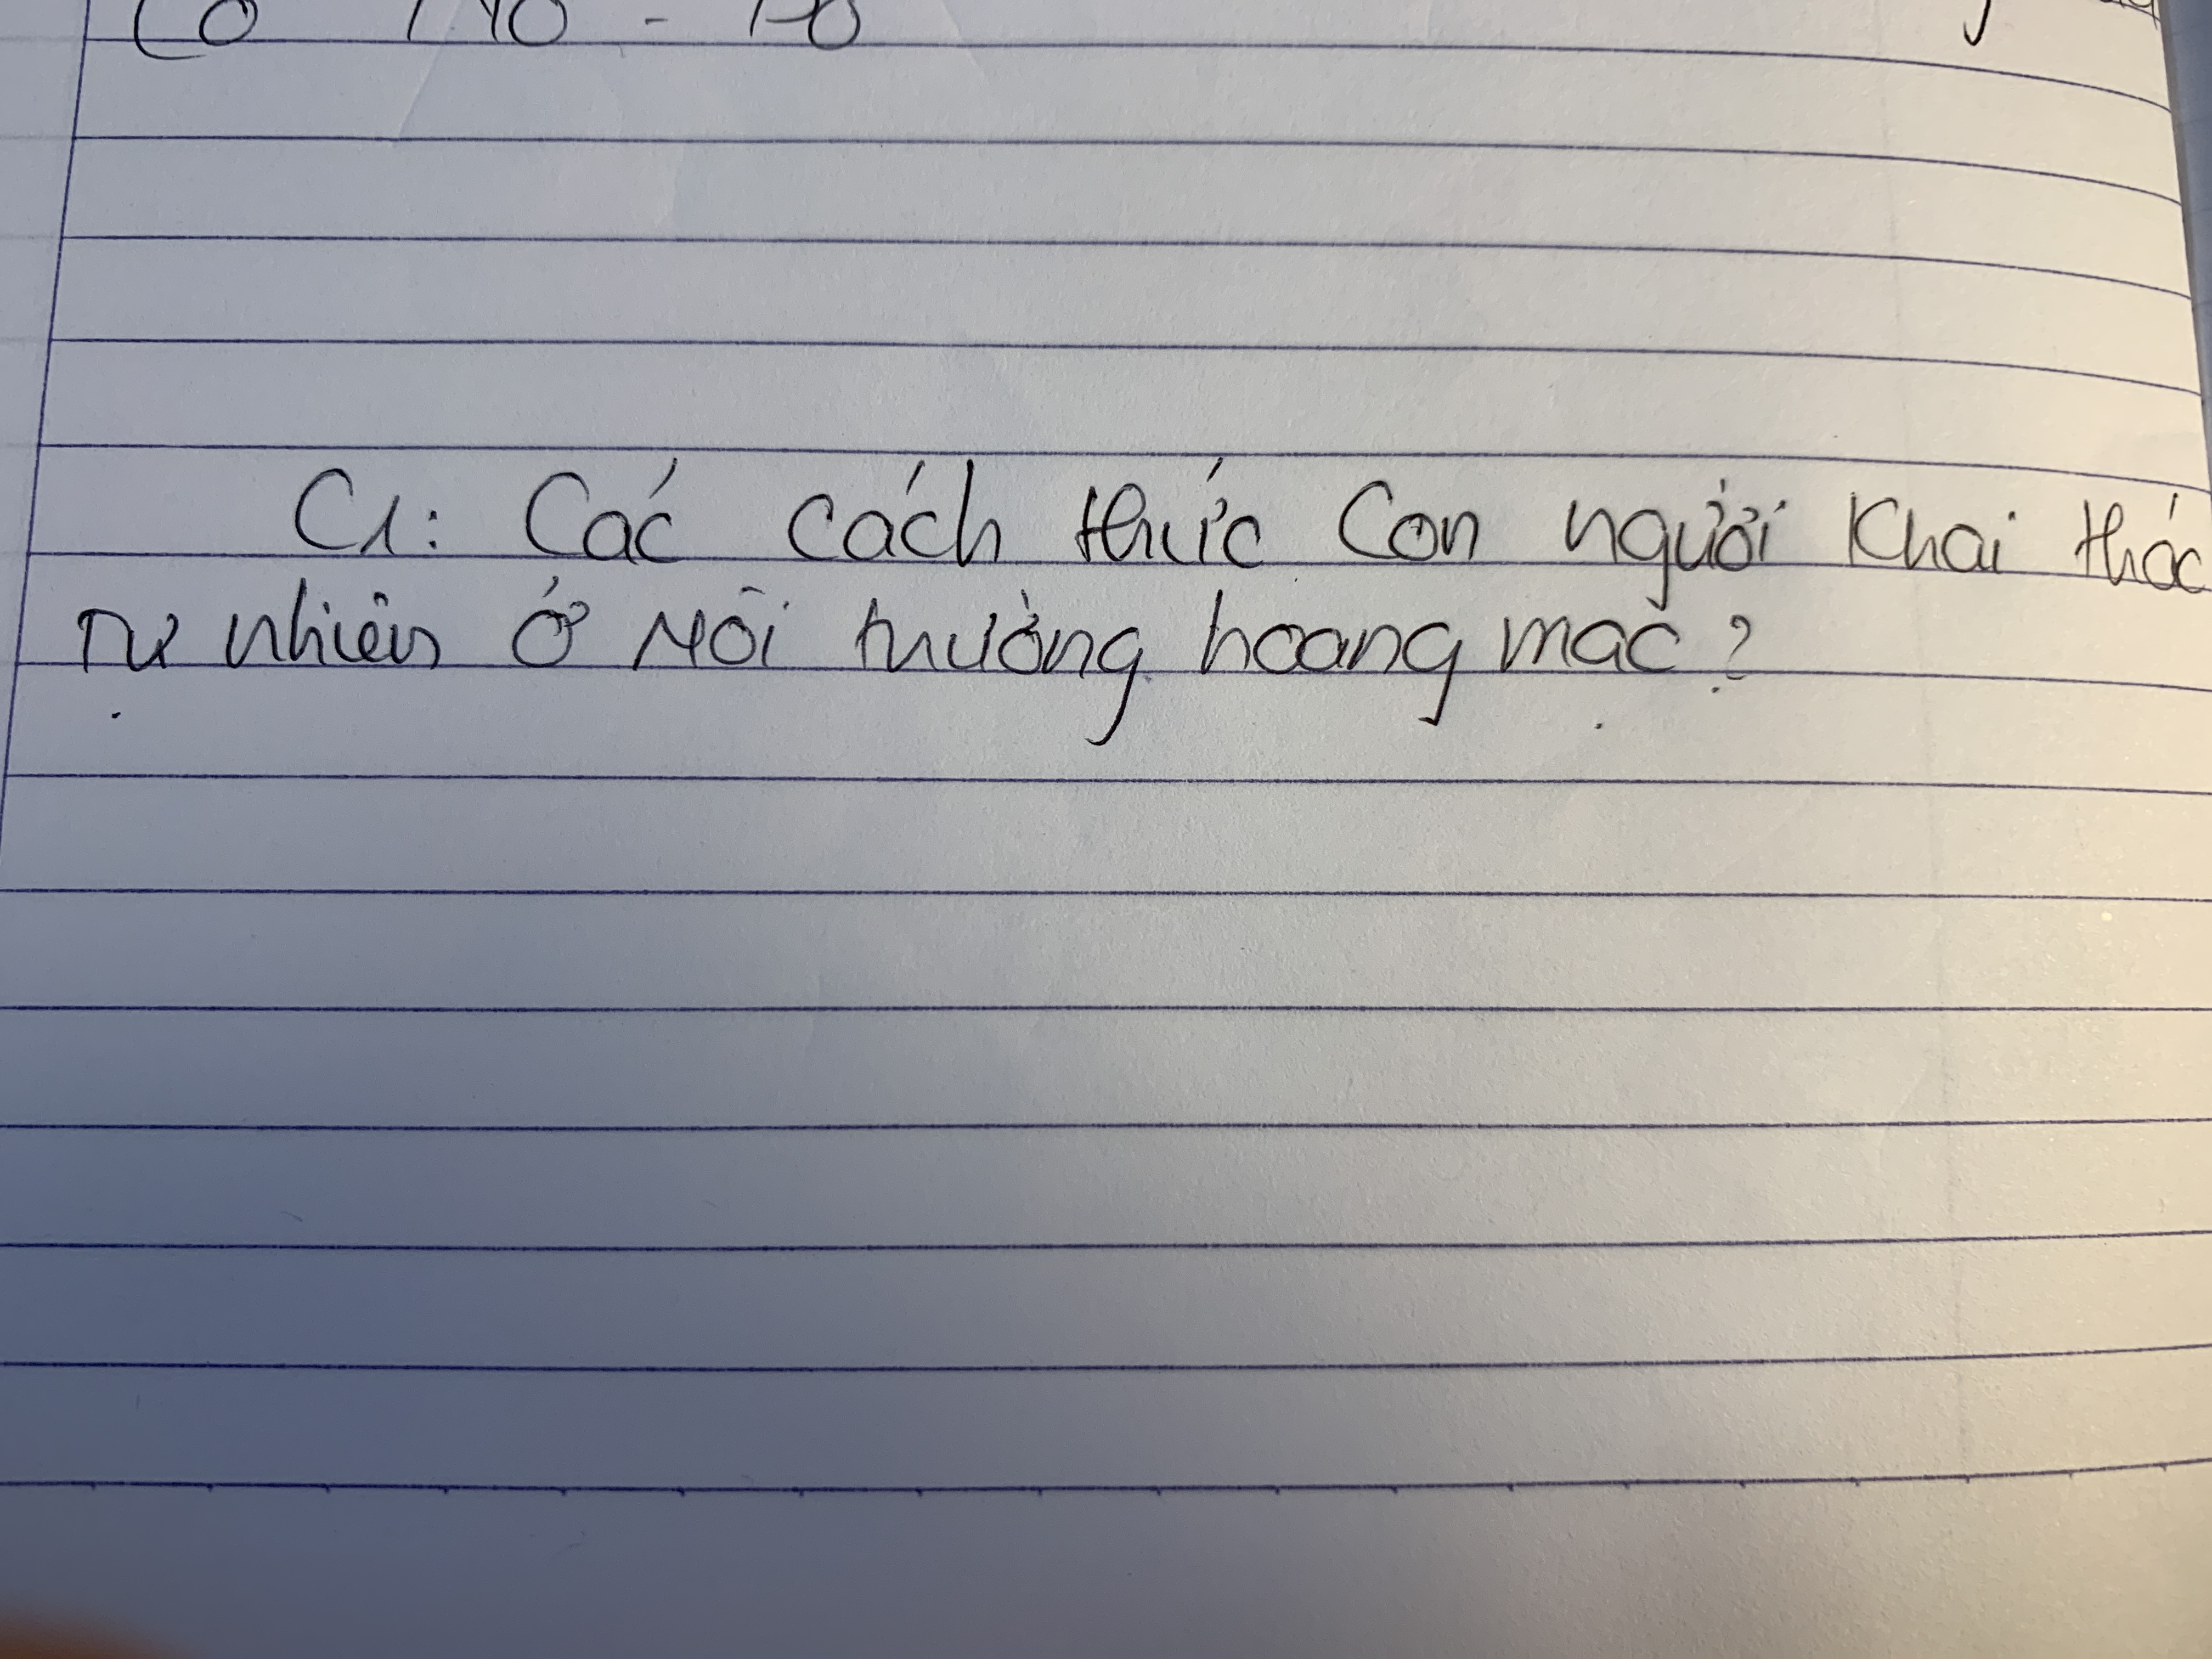 C1: Các cách thức Con người Khai thác
Tự nhiên ở Môi trường hoang mạc?